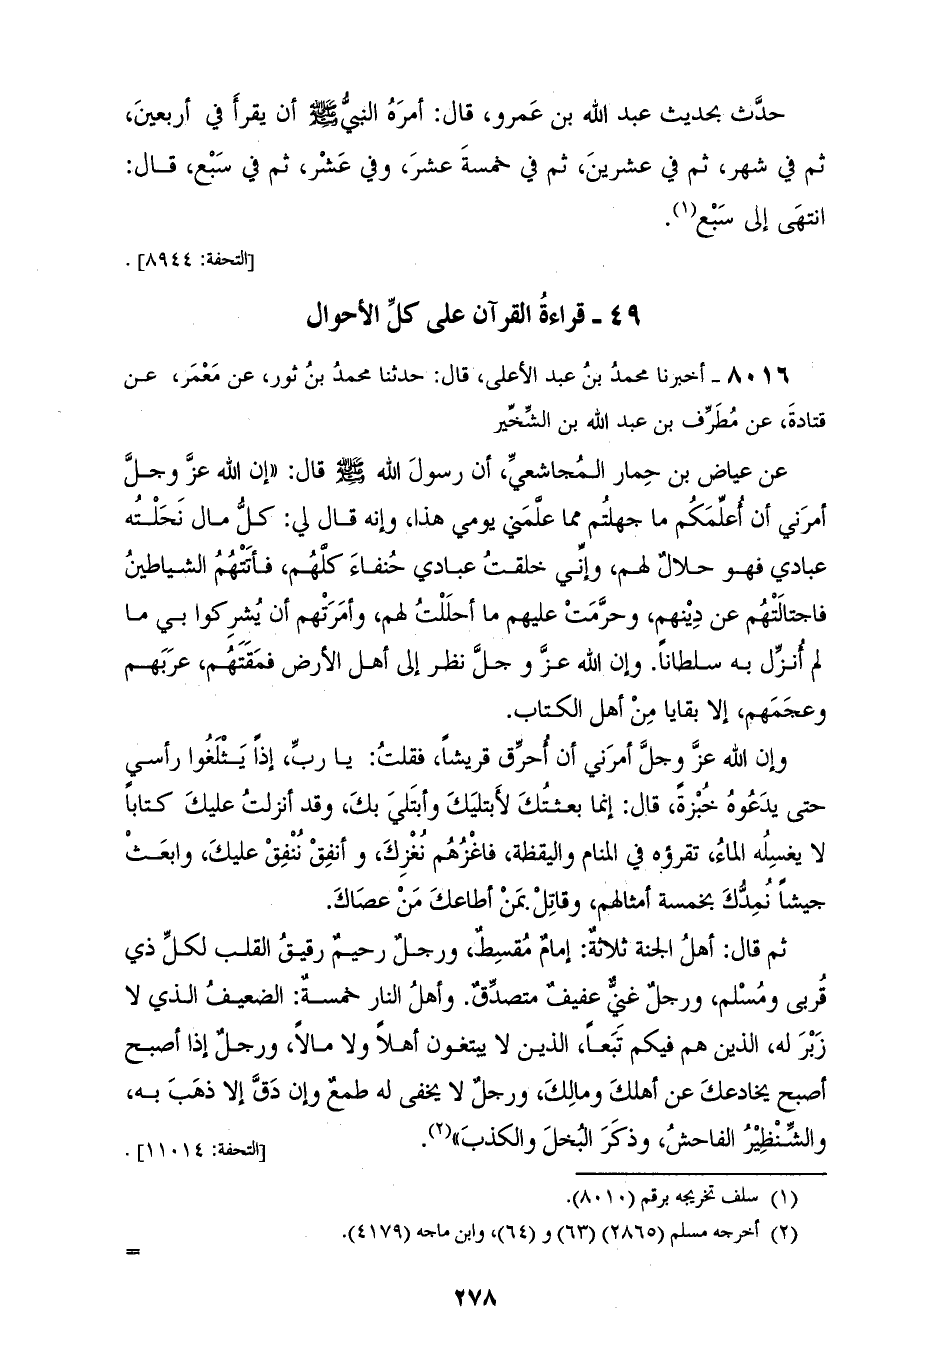 حدَّث بحديث عبد الله بن عَمرو، قال: أمرَهُ النبيُّ ﷺ أن يقرأَ في أربعينَ،
ثم في شهر، ثم في عشرينَ، ثم في خمسةَ عشرَ، وفي عَشْر، ثم في سَبْع، قــال:
انتهَى إلى سَبْع(١).
[التحفة: ٨٩٤٤] .
٤٩ ـ قراءةُ القرآن على كلِّ الأحوال
٨٠١٦ ـ أخبرنا محمدُ بنُ عبد الأعلى، قال: حدثنا محمدُ بنُ ثور، عن مَعْمَر، عـن
قتادةَ، عن مُطَرِّف بن عبد الله بن الشِّخِّير
عن عياض بن حِمار الـمُجاشعيِّ، أن رسولَ الله ﷺ قال: «إن الله عزَّ وجـلَّ
أمرَني أن أُعلِّمَكُم ما جهلتُم مما علَّمَني يومي هذا، وإنه قـال لي: كـلُّ مـال نَحَلْتُـه
عبادي فهـو حـلالٌ لهـم، وإنِّـي خلقـتُ عبـادي حُنفـاءَ كلَّهُـم، فـأتَتْهُمُ الشـياطينُ
فاجتالَتْهُم عن دِيْنهم، وحرَّمَتْ عليهم ما أحلَلْتُ لهم، وأمَرَتْهم أن يُشرِكوا بـي مـا
لم أُنـزِّل بـه سـلطاناً. وإن الله عـزَّ و جـلَّ نظـر إلى أهـل الأرض فمَقَتَهُم، عرَبَهـم
وعجَمَهم، إلا بقايا مِنْ أهل الكتاب.
وإن الله عزَّ وجلَّ أمرَني أن أُحرِّق قريشاً، فقلتُ: يـا ربِّ، إذاً يَـثْلَغُوا رأسي
حتى يدَعُوهُ خُبْزةً، قال: إنما بعثتُكَ لأَبتليَكَ وأَبتَليَ بكَ، وقد أنزلتُ عليكَ كتاباً
لا يغسِلُه الماءُ، تقرؤه في المنام واليقظة، فاغْزُهُم نُغْزِكَ، و أنفِقْ نُنْفِقْ عليكَ، وابعَـثْ
جيشاً نُمِدُّكَ بخمسة أمثالهم، وقاتِلْ بمَنْ أطاعكَ مَنْ عصَاكَ.
ثم قال: أهلُ الجنة ثلاثةٌ: إمامٌ مُقسِطٌ، ورجـلٌ رحيـمٌ رقيـقُ القلـب لكـلِّ ذي
قُربى ومُسْلم، ورجلٌ غنيٌّ عفيفٌ متصدِّقٌ. وأهلُ النار خمسـةٌ: الضعيـفُ الـذي لا
زَبْرَ له، الذين هـم فيكـم تَبَعـاً، الذيـن لا يبتغـون أهـلاً ولا مـالاً، ورجـلٌ إذا أصبـح
أصبح يخادعكَ عن أهلكَ ومالِكَ، ورجلٌ لا يخفى له طمعٌ وإن دَقَّ إلا ذهَبَ بـه،
والشِّنْظِيْرُ الفـاحشُ، وذكَرَ البُخلَ والكذبَ»(٢).
[التحفة: ١١٠١٤] .
(١) سلف تخريجه برقم (٨٠١٠).
(٢) أخرجه مسلم (٢٨٦٥) (٦٣) و (٦٤)، وابن ماجه (٤١٧٩).
=
٢٧٨